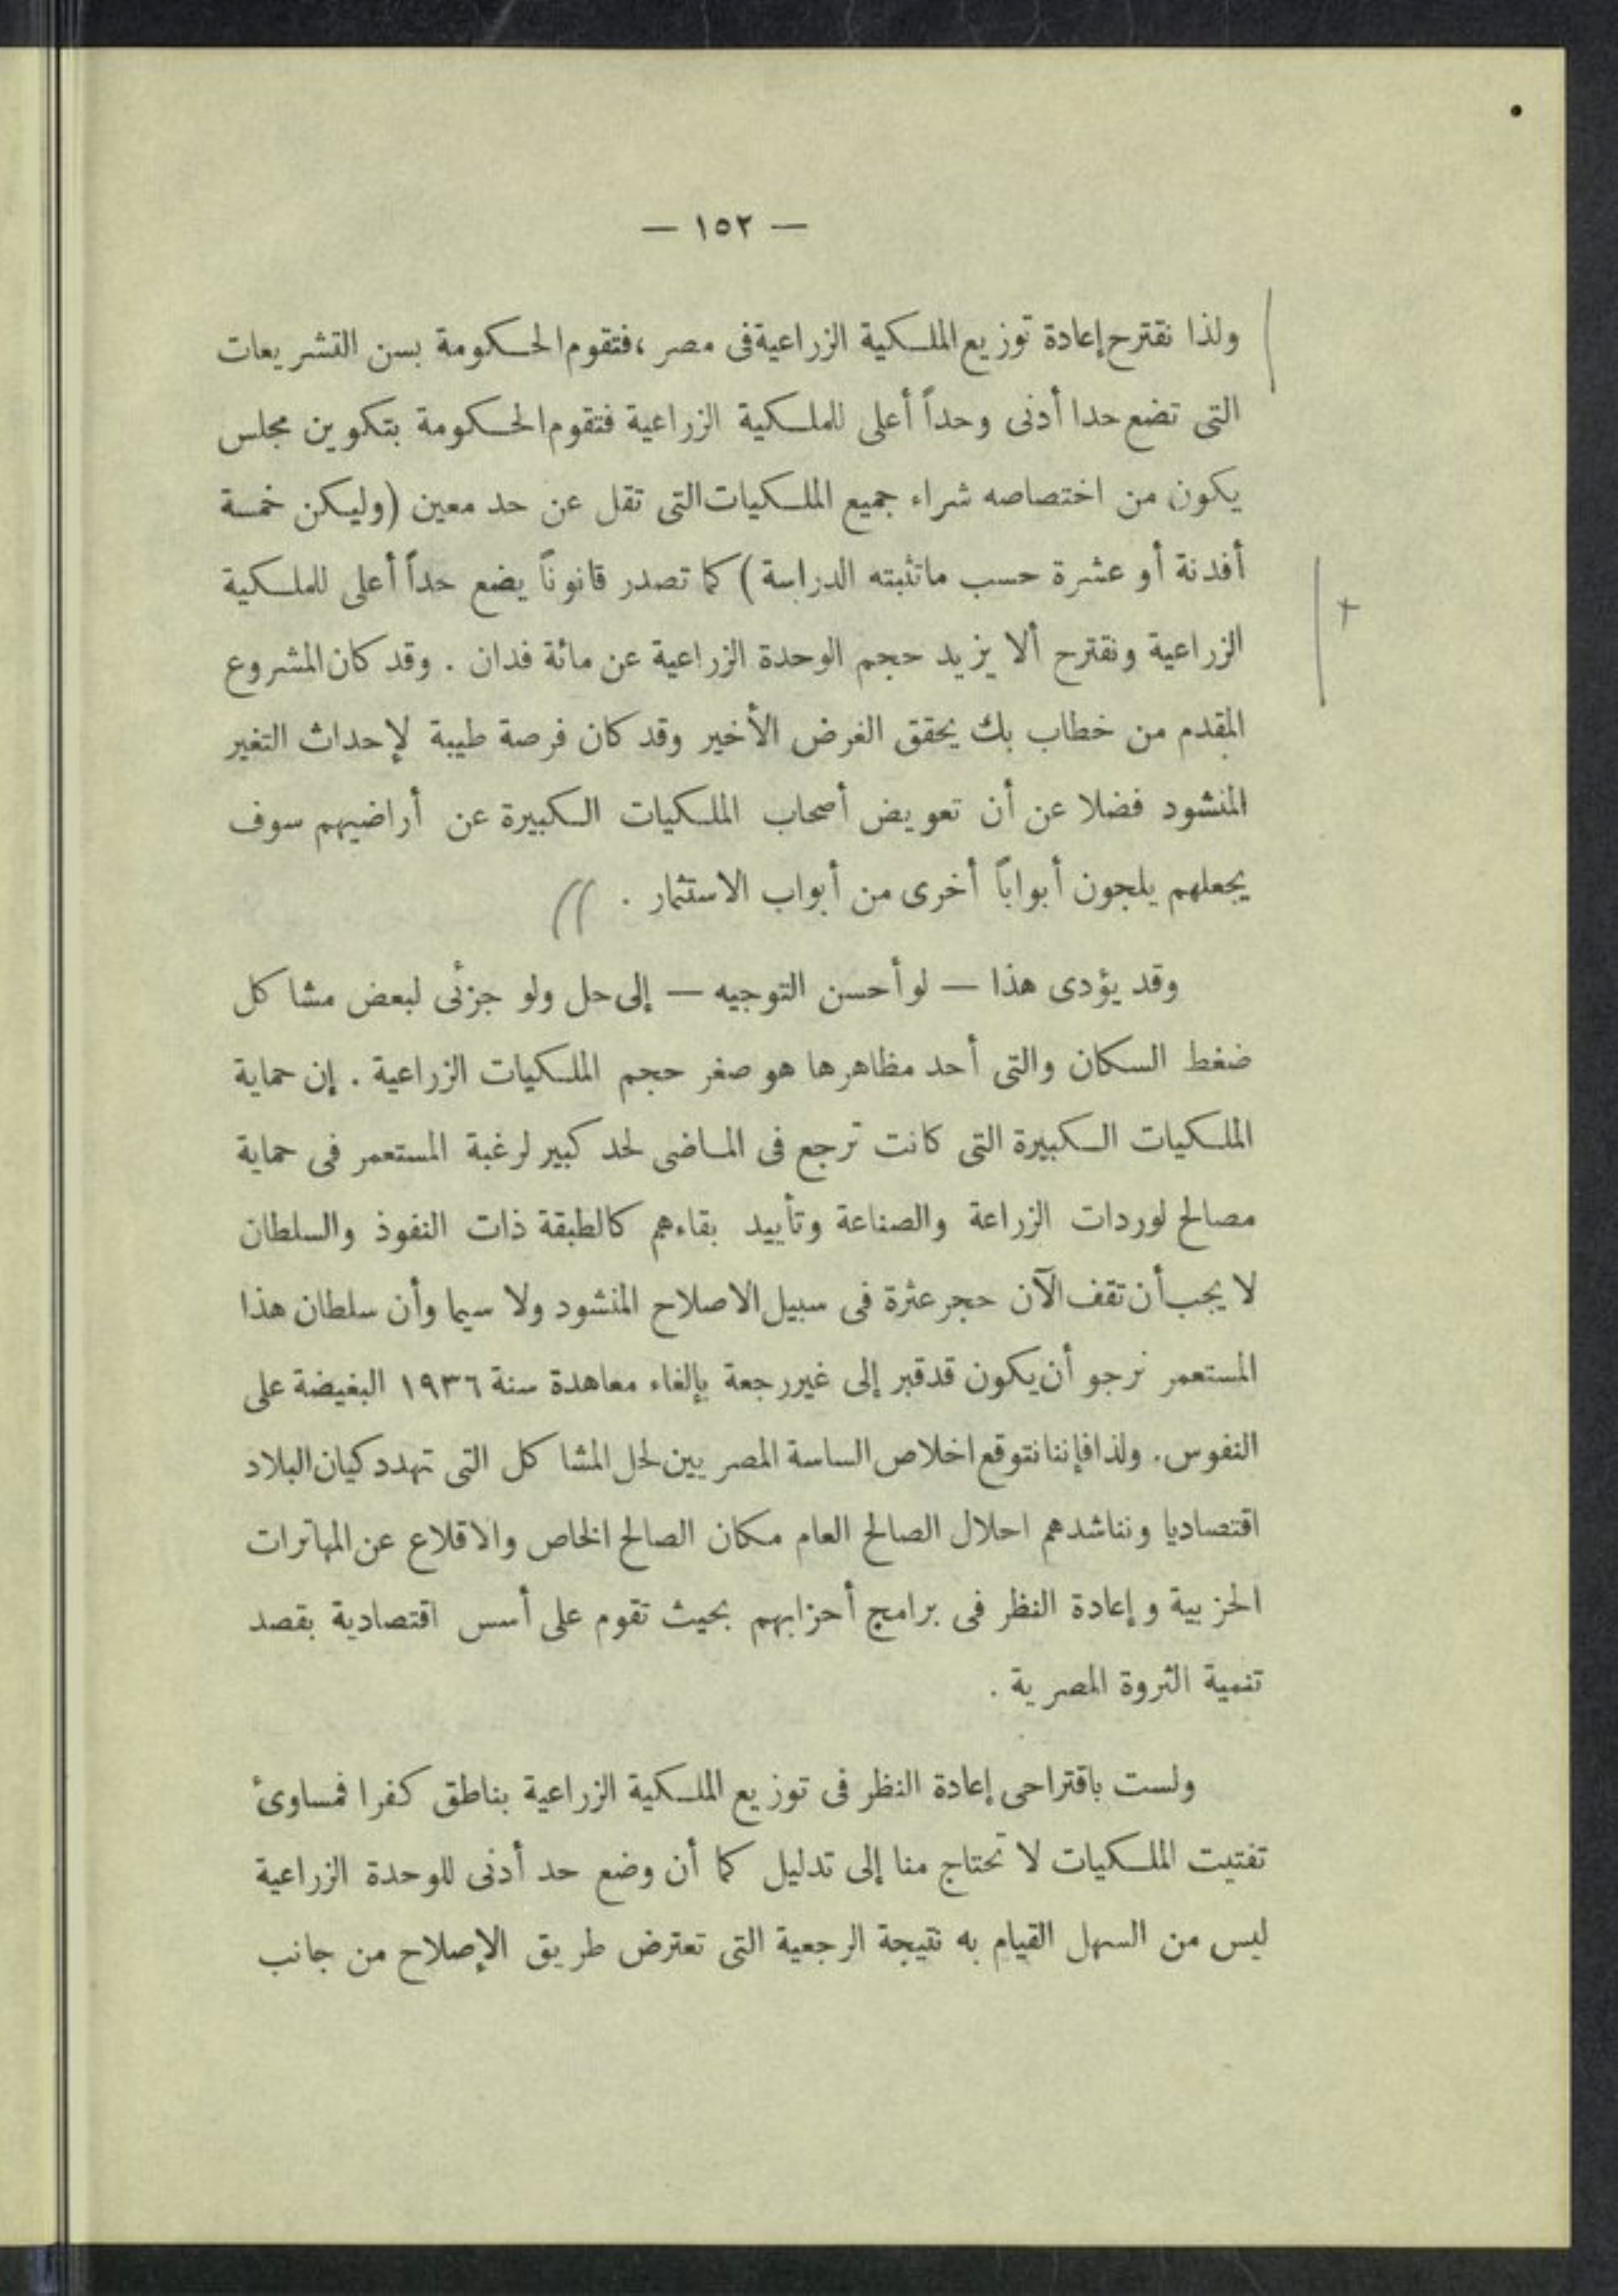 — ١٥٢ —
ولذا نقترح إعادة توزيع الملكية الزراعية فى مصر ، فتقوم الحكومة بسن التشريعات
التى تضع حدا أدنى وحداً أعلى للملكية الزراعية فتقوم الحكومة بتكوين مجلس
يكون من اختصاصه شراء جميع الملكيات التى تقل عن حد معين (وليكن خمسة
أفدنة أو عشرة حسب ماتثبته الدراسة) كما تصدر قانوناً يضع حداً أعلى للملكية
الزراعية ونقترح ألا يزيد حجم الوحدة الزراعية عن مائة فدان . وقد كان المشروع
المقدم من خطاب بك يحقق الغرض الأخير وقد كان فرصة طيبة لإحداث التغير
المنشود فضلا عن أن تعويض أصحاب الملكيات الكبيرة عن أراضيهم سوف
يجعلهم يلجون أبواباً أخرى من أبواب الاستثمار .
وقد يؤدى هذا — لو أحسن التوجيه — إلى حل ولو جزئى لبعض مشاكل
ضغط السكان والتى أحد مظاهرها هو صغر حجم الملكيات الزراعية . إن حماية
الملكيات الكبيرة التى كانت ترجع فى الماضى لحد كبير لرغبة المستعمر فى حماية
مصالح لوردات الزراعة والصناعة وتأييد بقاءهم كالطبقة ذات النفوذ والسلطان
لا يجب أن تقف الآن حجر عثرة فى سبيل الاصلاح المنشود ولا سيما وأن سلطان هذا
المستعمر نرجو أن يكون قد قبر إلى غير رجعة بإلغاء معاهدة سنة ١٩٣٦ البغيضة على
النفوس. ولذا فإننا نتوقع اخلاص الساسة المصريين لحل المشاكل التى تهدد كيان البلاد
اقتصاديا ونناشدهم احلال الصالح العام مكان الصالح الخاص والاقلاع عن المهاترات
الحزبية وإعادة النظر فى برامج أحزابهم بحيث تقوم على أسس اقتصادية بقصد
تنمية الثروة المصرية .
ولست باقتراحى إعادة النظر فى توزيع الملكية الزراعية بناطق كفرا فمساوئ
تفتيت الملكيات لا تحتاج منا إلى تدليل كما أن وضع حد أدنى للوحدة الزراعية
ليس من السهل القيام به نتيجة الرجعية التى تعترض طريق الإصلاح من جانب